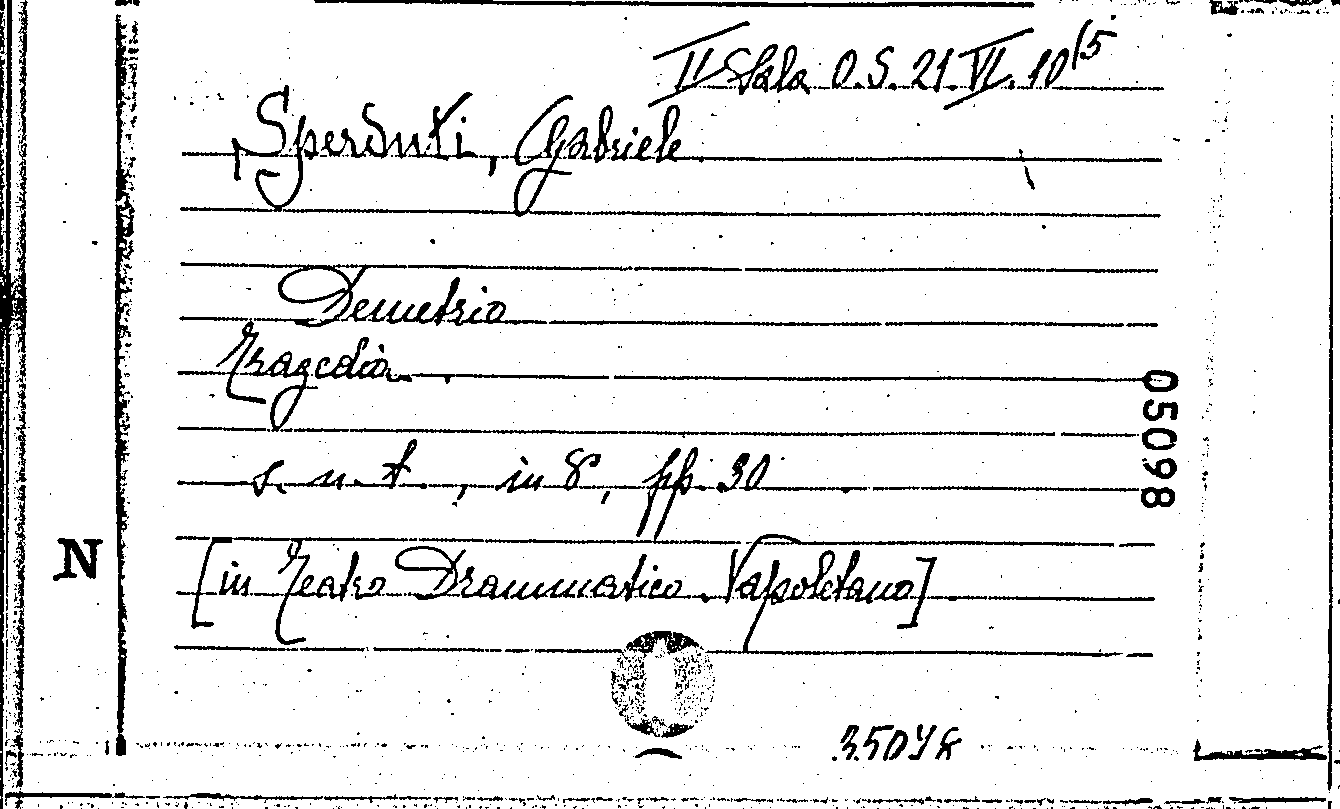 II Sala O.S. 21.VI.10(5
Sperduti, Gabriele
Demetrio
Tragedia
s. n. t., in 8°, pp. 30
05098
N
[in Teatro Drammatico Napoletano]